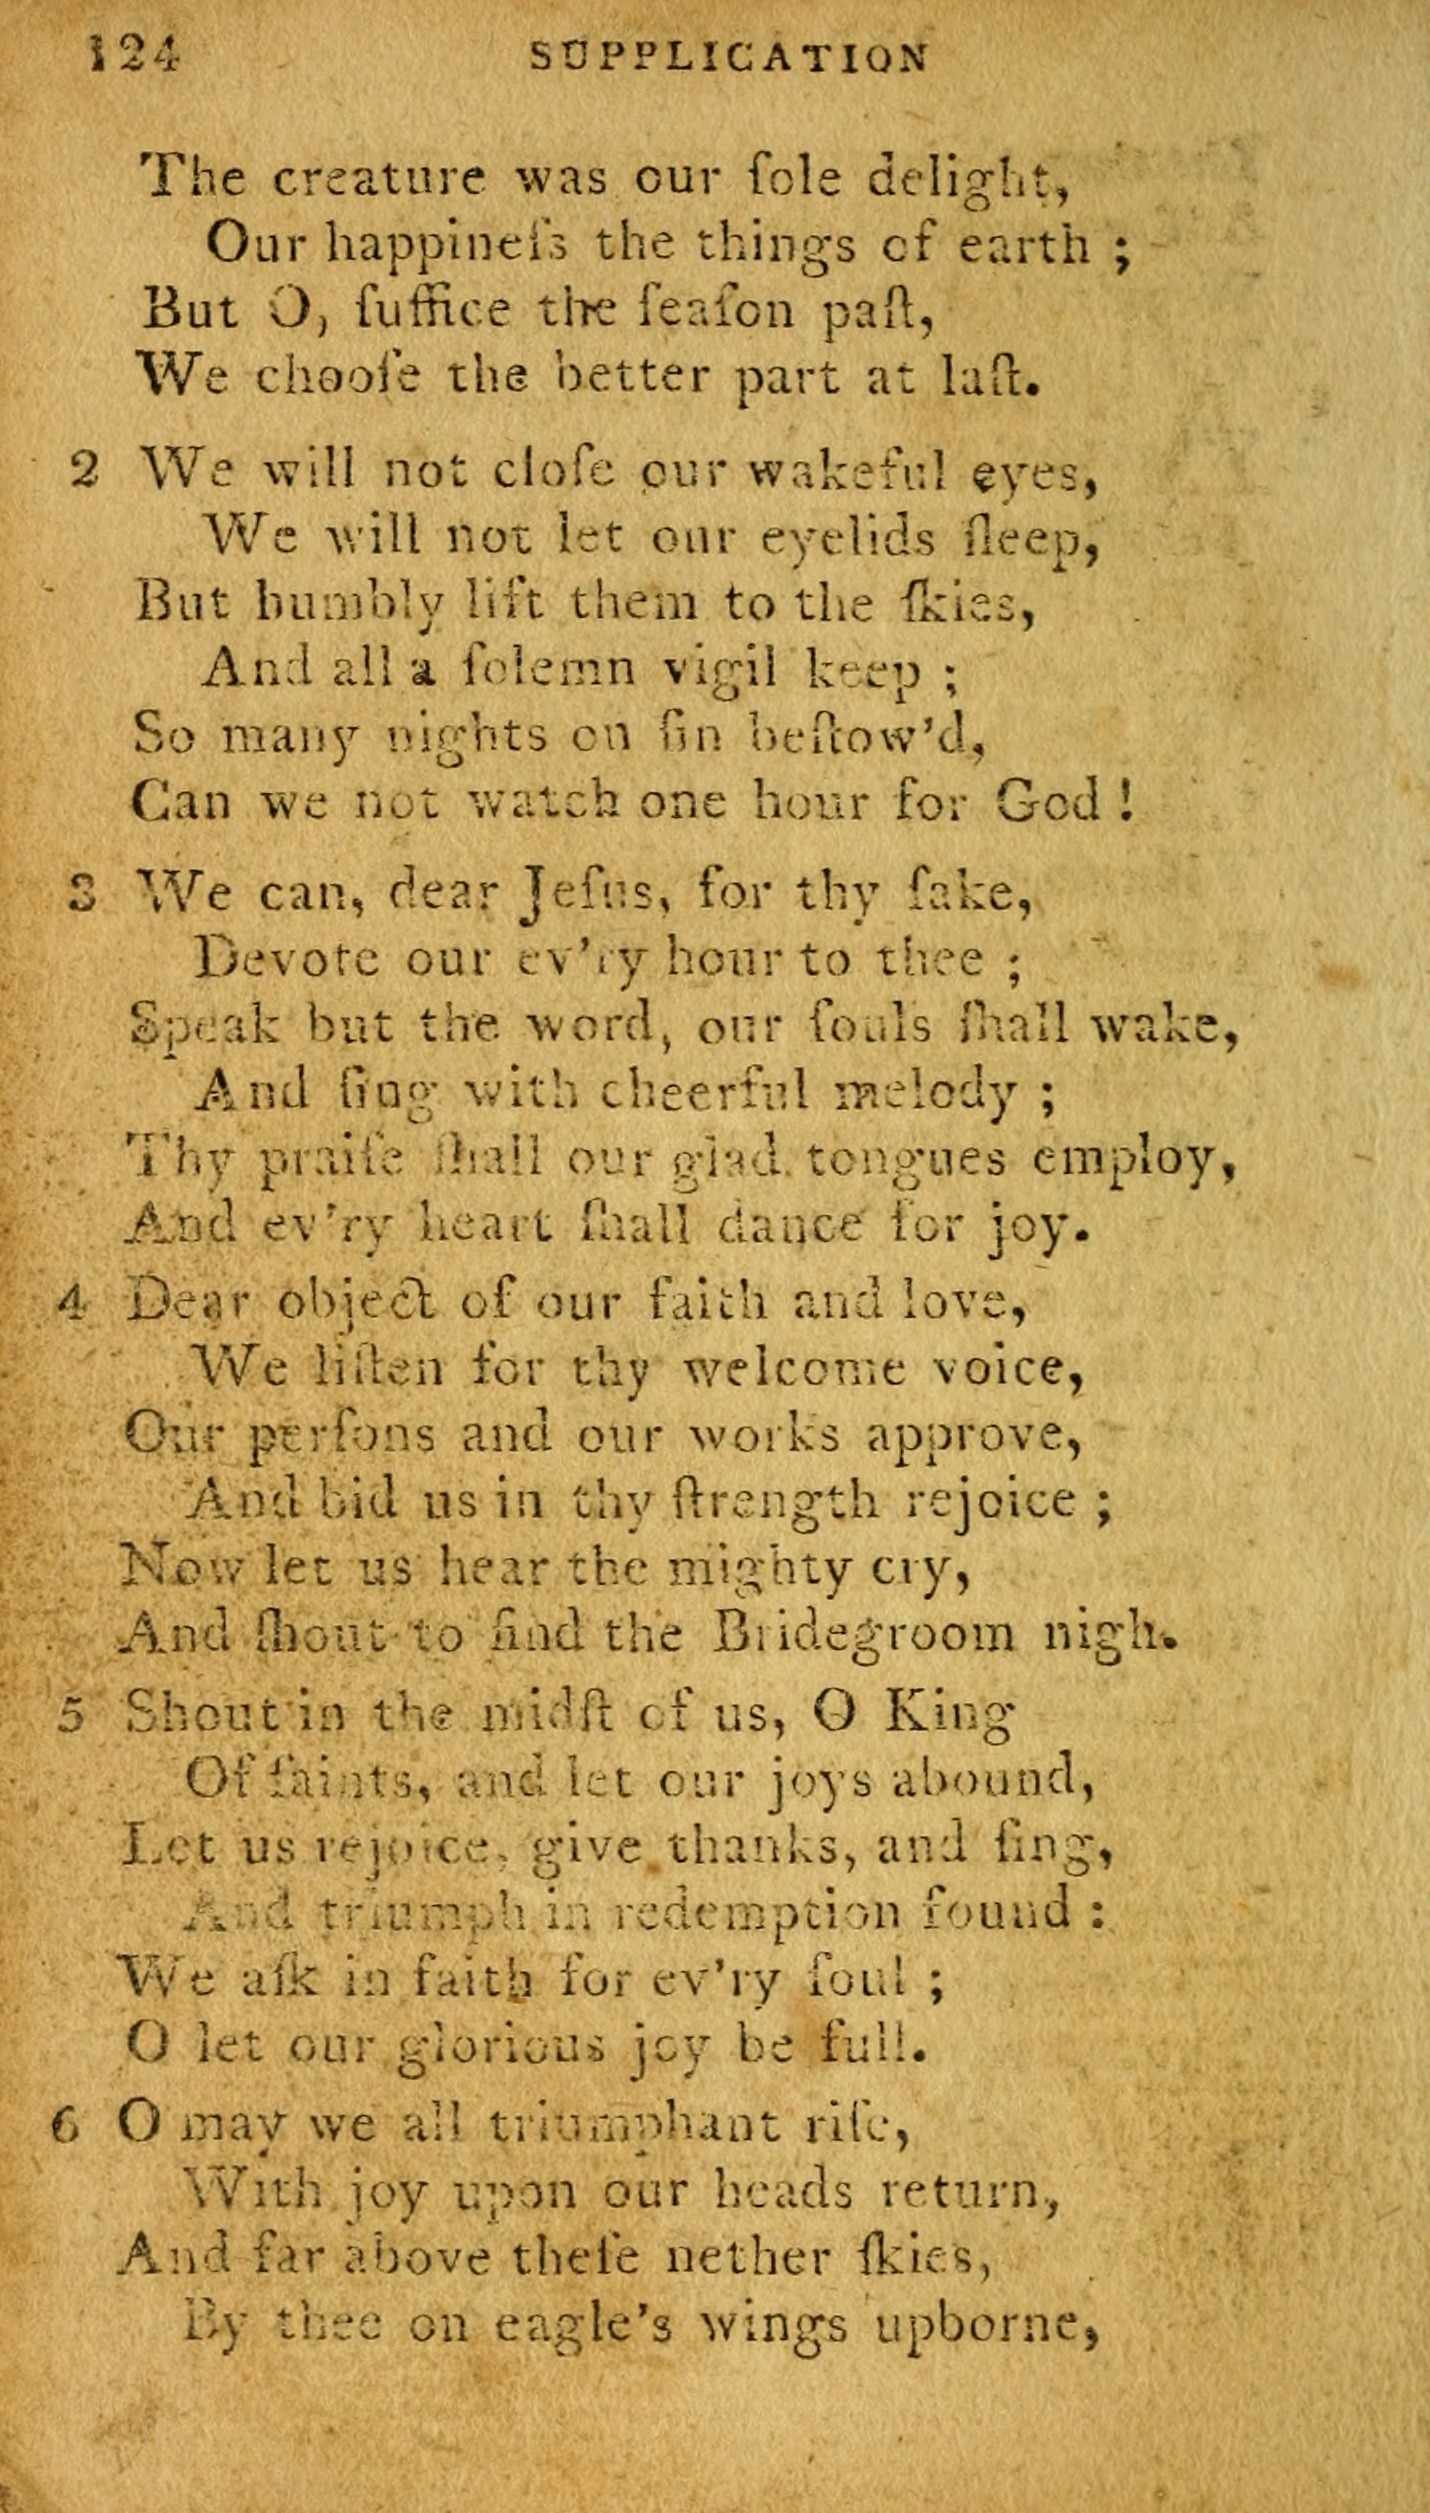 124 SUPPLICATION
The creature was our ſole delight,
Our happineſs the things of earth ;
But O, ſuffice the ſeaſon paſt,
We chooſe the better part at laſt.
2 We will not cloſe our wakeful eyes,
We will not let our eyelids ſleep,
But humbly lift them to the ſkies,
And all a ſolemn vigil keep ;
So many nights on ſin beſtow'd,
Can we not watch one hour for God !
3 We can, dear Jeſus, for thy ſake,
Devote our ev'ry hour to thee ;
Speak but the word, our ſouls ſhall wake,
And ſing with cheerful melody ;
Thy praiſe ſhall our glad tongues employ,
And ev'ry heart ſhall dance for joy.
4 Dear object of our faith and love,
We liſten for thy welcome voice,
Our perſons and our works approve,
And bid us in thy ſtrength rejoice ;
Now let us hear the mighty cry,
And ſhout to find the Bridegroom nigh.
5 Shout in the midſt of us, O King
Of ſaints, and let our joys abound,
Let us rejoice, give thanks, and ſing,
And triumph in redemption found :
We aſk in faith for ev'ry ſoul ;
O let our glorious joy be full.
6 O may we all triumphant riſe,
With joy upon our heads return,
And far above theſe nether ſkies,
By thee on eagle's wings upborne,